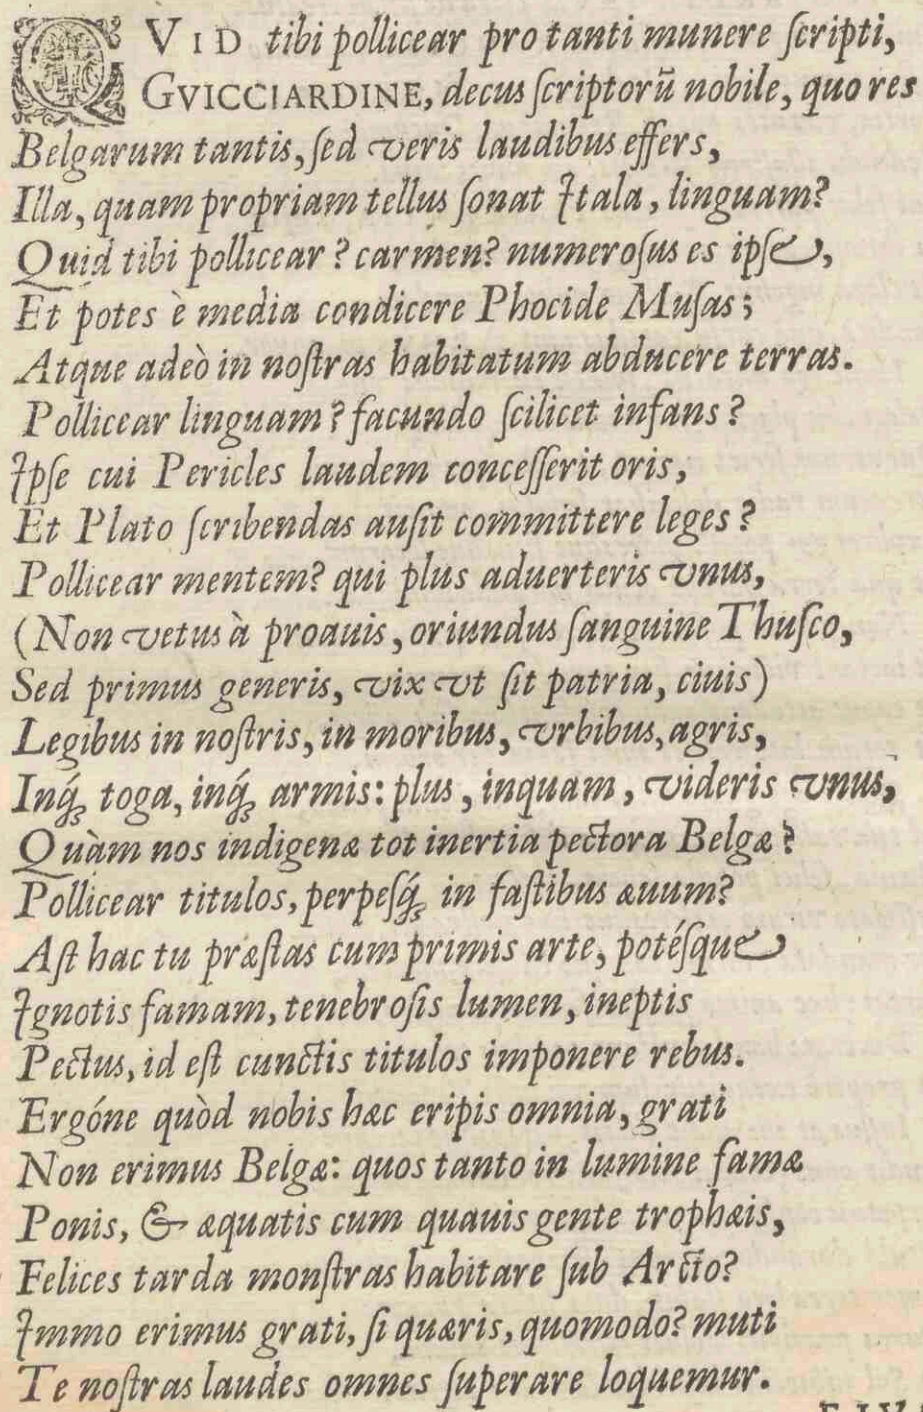 QVID tibi pollicear pro tanti munere ſcripti,
GVICCIARDINE, decus ſcriptorū nobile, quo res
Belgarum tantis, ſed veris laudibus effers,
Illa, quam propriam tellus ſonat Itala, linguam?
Quid tibi pollicear? carmen? numeroſus es ipſe,
Et potes è media condicere Phocide Muſas;
Atque adeò in noſtras habitatum abducere terras.
Pollicear linguam? facundo ſcilicet infans?
Ipſe cui Pericles laudem conceſſerit oris,
Et Plato ſcribendas auſit committere leges?
Pollicear mentem? qui plus aduerteris vnus,
(Non vetus à proauis, oriundus ſanguine Thuſco,
Sed primus generis, vix vt ſit patria, ciuis)
Legibus in noſtris, in moribus, vrbibus, agris,
Inq́ꝫ toga, inq́ꝫ armis: plus, inquam, videris vnus,
Quàm nos indigenæ tot inertia pectora Belgæ?
Pollicear titulos, perpeſq́ꝫ in faſtibus æuum?
Aſt hac tu præſtas cum primis arte, potéſque
Ignotis famam, tenebroſis lumen, ineptis
Pectus, id eſt cunctis titulos imponere rebus.
Ergóne quòd nobis hæc eripis omnia, grati
Non erimus Belgæ: quos tanto in lumine famæ
Ponis, & æquatis cum quauis gente trophæis,
Felices tarda monſtras habitare ſub Arcto?
Immo erimus grati, ſi quæris, quomodo? muti
Te noſtras laudes omnes ſuperare loquemur.